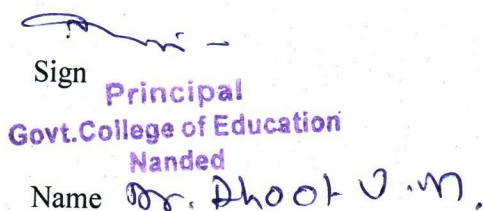 Sign
Principal
Govt.College of Education
Nanded
Name Dr. Dhoot V.M.